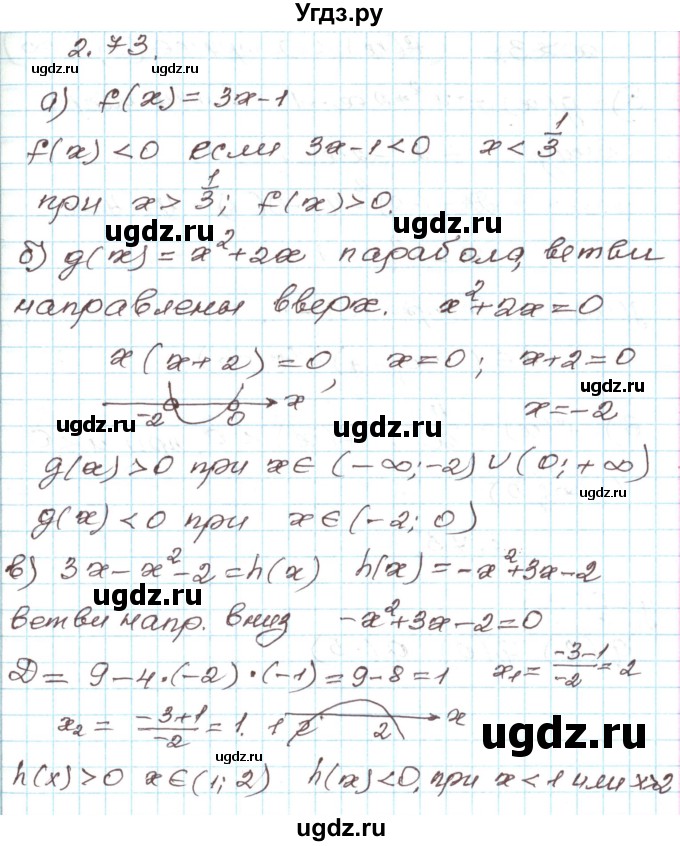 Угдз.ру
2.73.
ugdz.ru ugdz.ru
а) f(x) = 3x-1
f(x) < 0 если 3x-1<0 x < 1/3
при x > 1/3; f(x)>0.
ugdz.ru ugdz.ru
б) g(x) = x²+2x парабола, ветви
направлены вверх. x²+2x=0
x(x+2)=0, x=0; x+2=0
ugdz.ru
-2 0 x x=-2
ugdz.ru ugdz.ru ugdz.ru
g(x)>0 при x∈(-∞;-2)∪(0;+∞)
g(x)<0 при x∈(-2; 0)
в) 3x-x²-2=h(x) h(x)=-x²+3x-2
ugdz.ru
ветви напр. вниз -x²+3x-2=0
ugdz.ru
D = 9-4·(-2)·(-1)=9-8=1 x₁= (-3-1)/(-2) = 2
x₂ = (-3+1)/(-2) = 1. 1 2 x
ugdz.ru ugdz.ru
h(x)>0 x∈(1; 2) h(x)<0, при x<1 или x>2
ugdz.ru